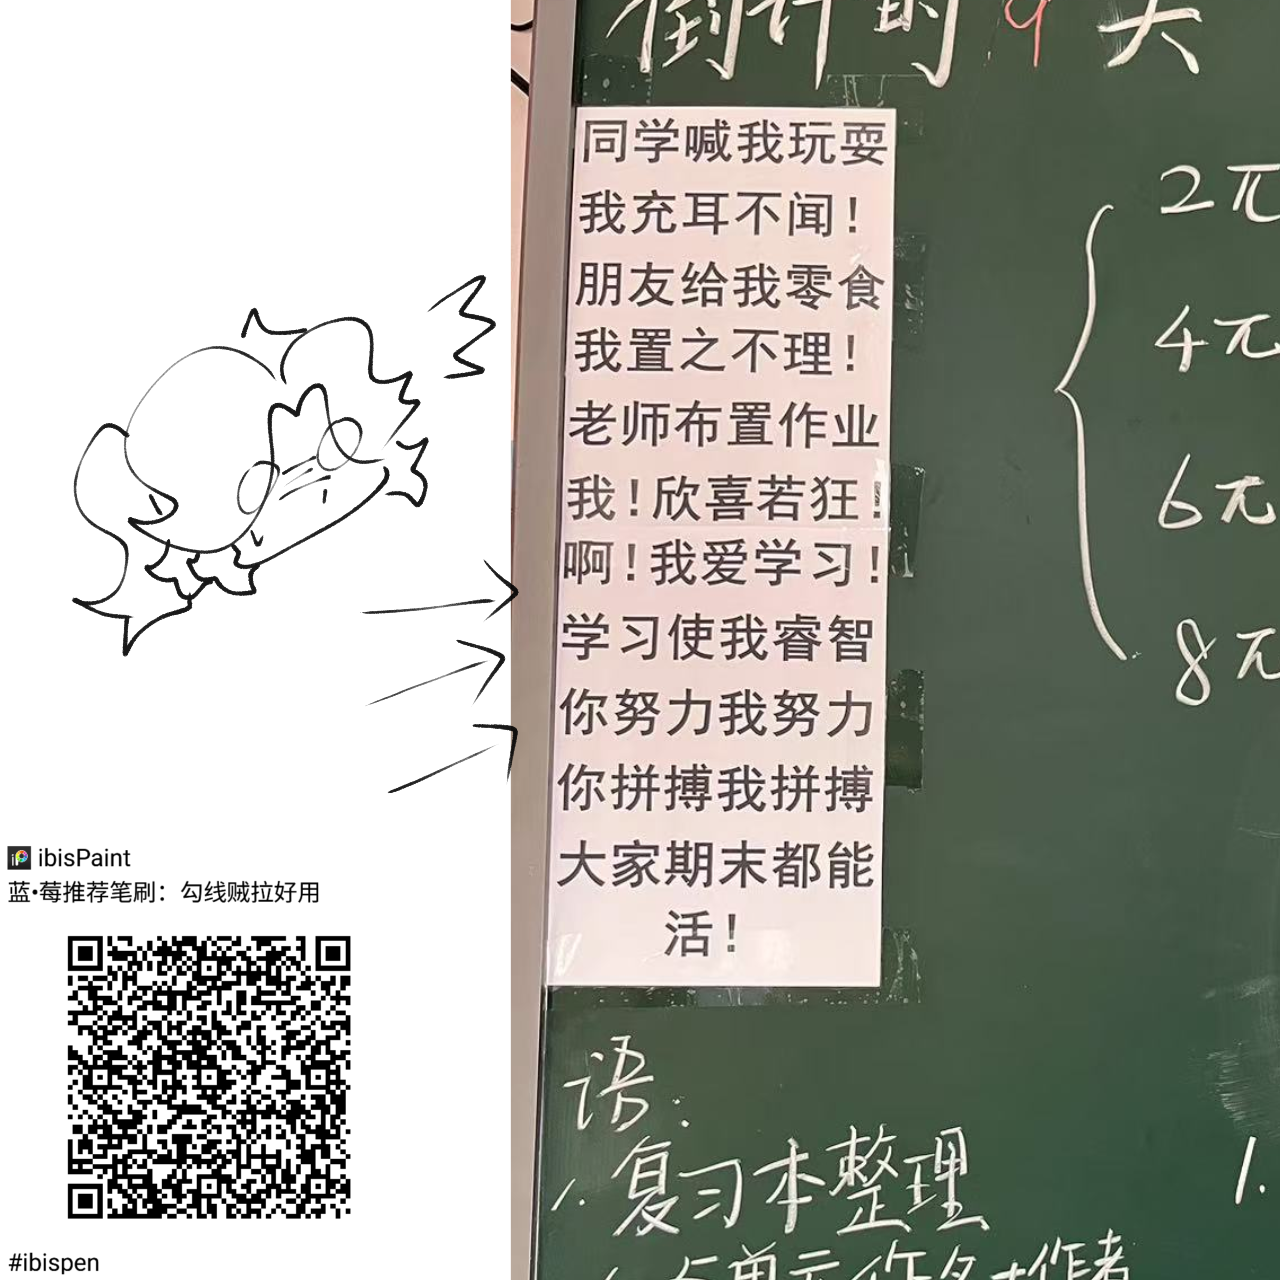 ibisPaint
蓝•莓推荐笔刷：勾线贼拉好用
#ibispen
倒计时9天
同学喊我玩耍
我充耳不闻！
朋友给我零食
我置之不理！
老师布置作业
我！欣喜若狂！
啊！我爱学习！
学习使我睿智
你努力我努力
你拼搏我拼搏
大家期末都能
活！
2π
4π
6π
8π
语：
1. 复习本整理
1.